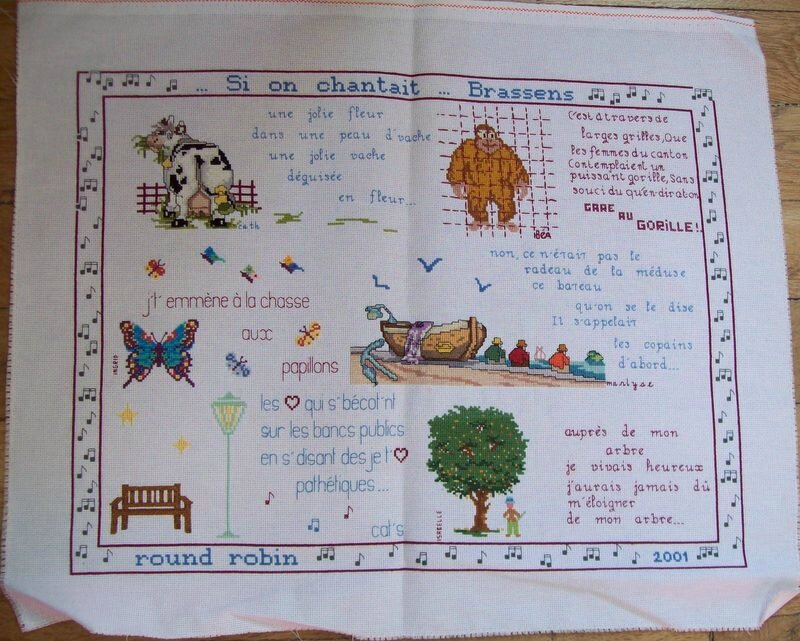 ... Si on chantait ... Brassens
une jolie fleur
dans une peau d'vache
une jolie vache
déguisée
en fleur...
cath
C'est à travers de
larges grilles, Que
les femmes du canton
Contemplaient un
puissant gorille, Sans
souci du qu'en-diraton
GARE
AU
GORILLE!
BÉA
j't' emmène à la chasse
aux
papillons
INGRID
non, ce n'était pas le
radeau de la méduse
ce bateau
qu'on se le dise
Il s'appelait
les copains
d'abord...
marlyse
les ♡ qui s'bécot'nt
sur les bancs publics
en s'disant des je t'♡
pathétiques...
cat's
auprès de mon
arbre
je vivais heureux
j'aurais jamais dû
m'éloigner
de mon arbre...
ISABELLE
round robin
2001